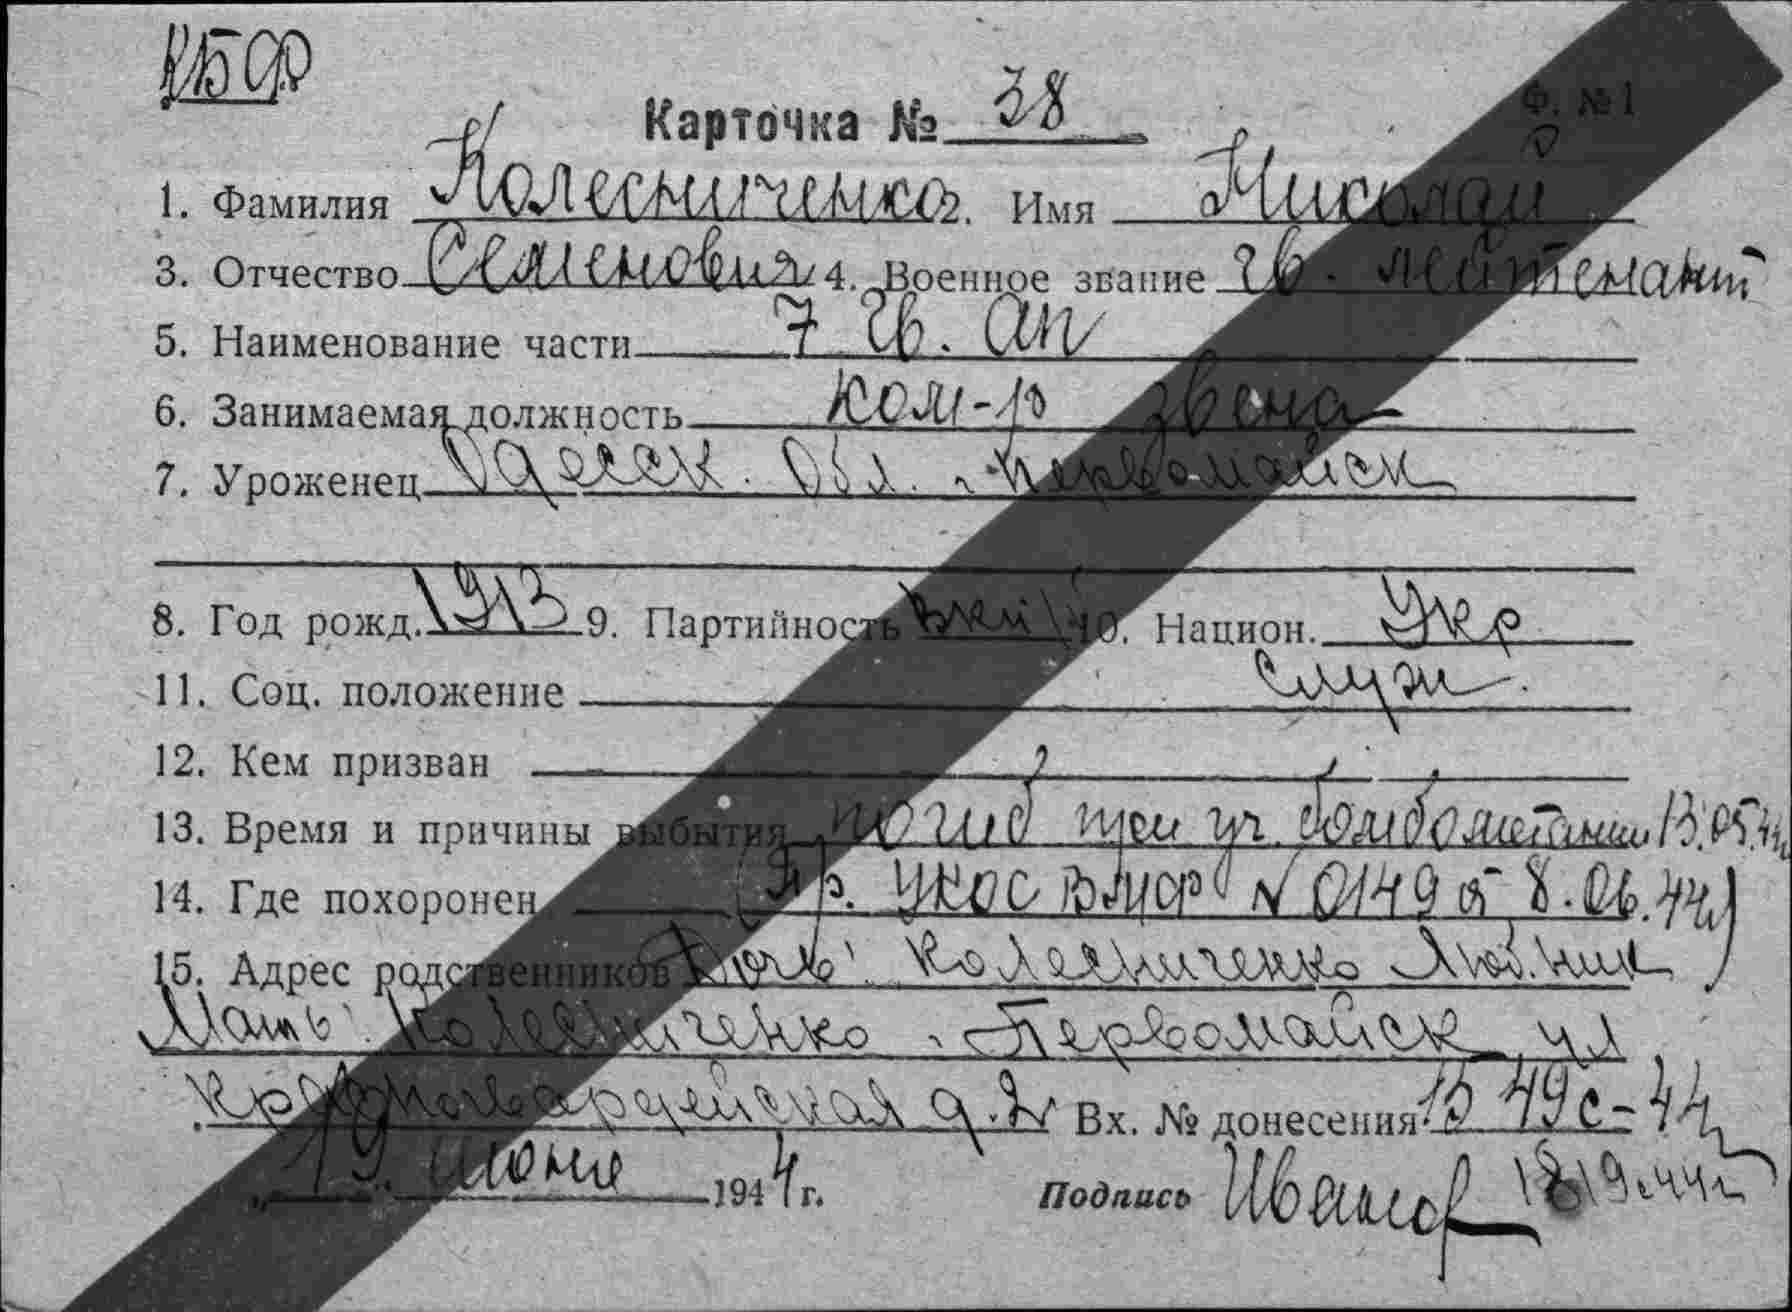 КБФ
Карточка № 38
Ф. № 1
1. Фамилия Колесниченко 2. Имя Николай
3. Отчество Семенович 4. Военное звание гв. лейтенант
5. Наименование части 7 Гв. АП
6. Занимаемая должность ком-р звена
7. Уроженец Одесск. Обл. г. Первомайск
8. Год рожд. 1913 9. Партийность 10. Национ. Укр
11. Соц. положение Служ.
12. Кем призван
13. Время и причины выбытия погиб при уч. бомбометании 13.05.44
14. Где похоронен (Пр. УКОС ВМФ № 0149 от 8.06.44)
15. Адрес родственников Дочь Колесниченко Люб. Ник
Мать Колесниченко г. Первомайск ул
Красногвардейская д. Вх. № донесения 1549с-44
19. июня 1944 г. Подпись Иванов